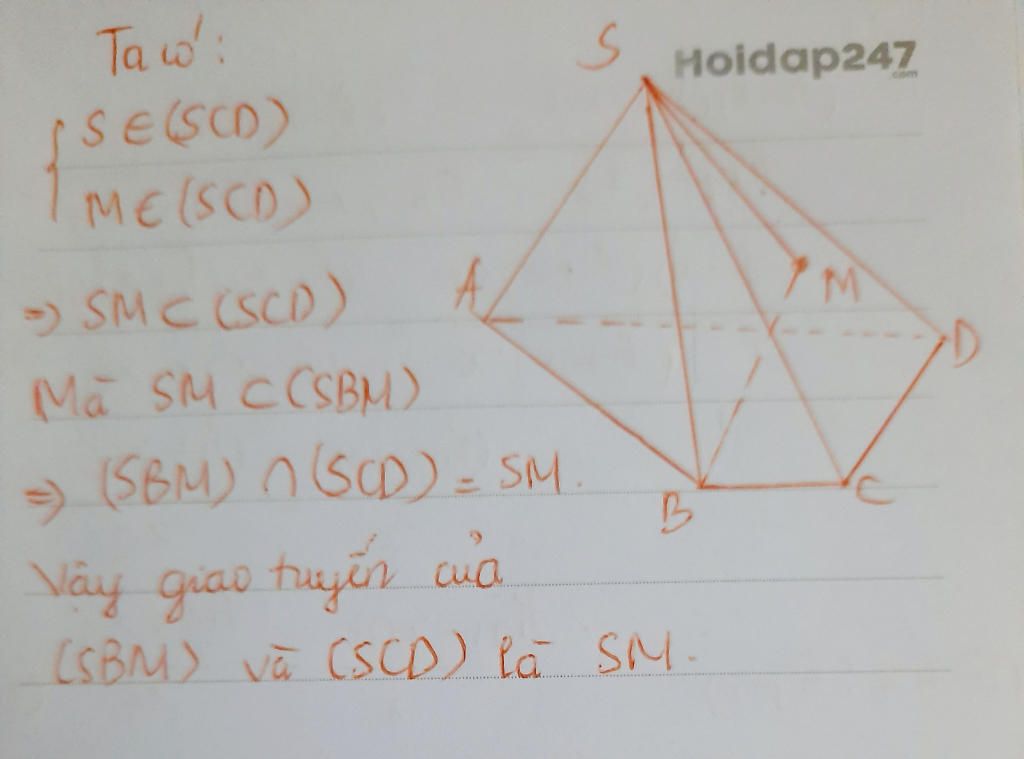 Ta có:
S ∈ (SCD)
M ∈ (SCD)
=> SM ⊂ (SCD)
Mà SM ⊂ (SBM)
=> (SBM) ∩ (SCD) = SM.
Vậy giao tuyến của
(SBM) và (SCD) là SM.
S
Hoidap247
.com
A
M
D
B
C